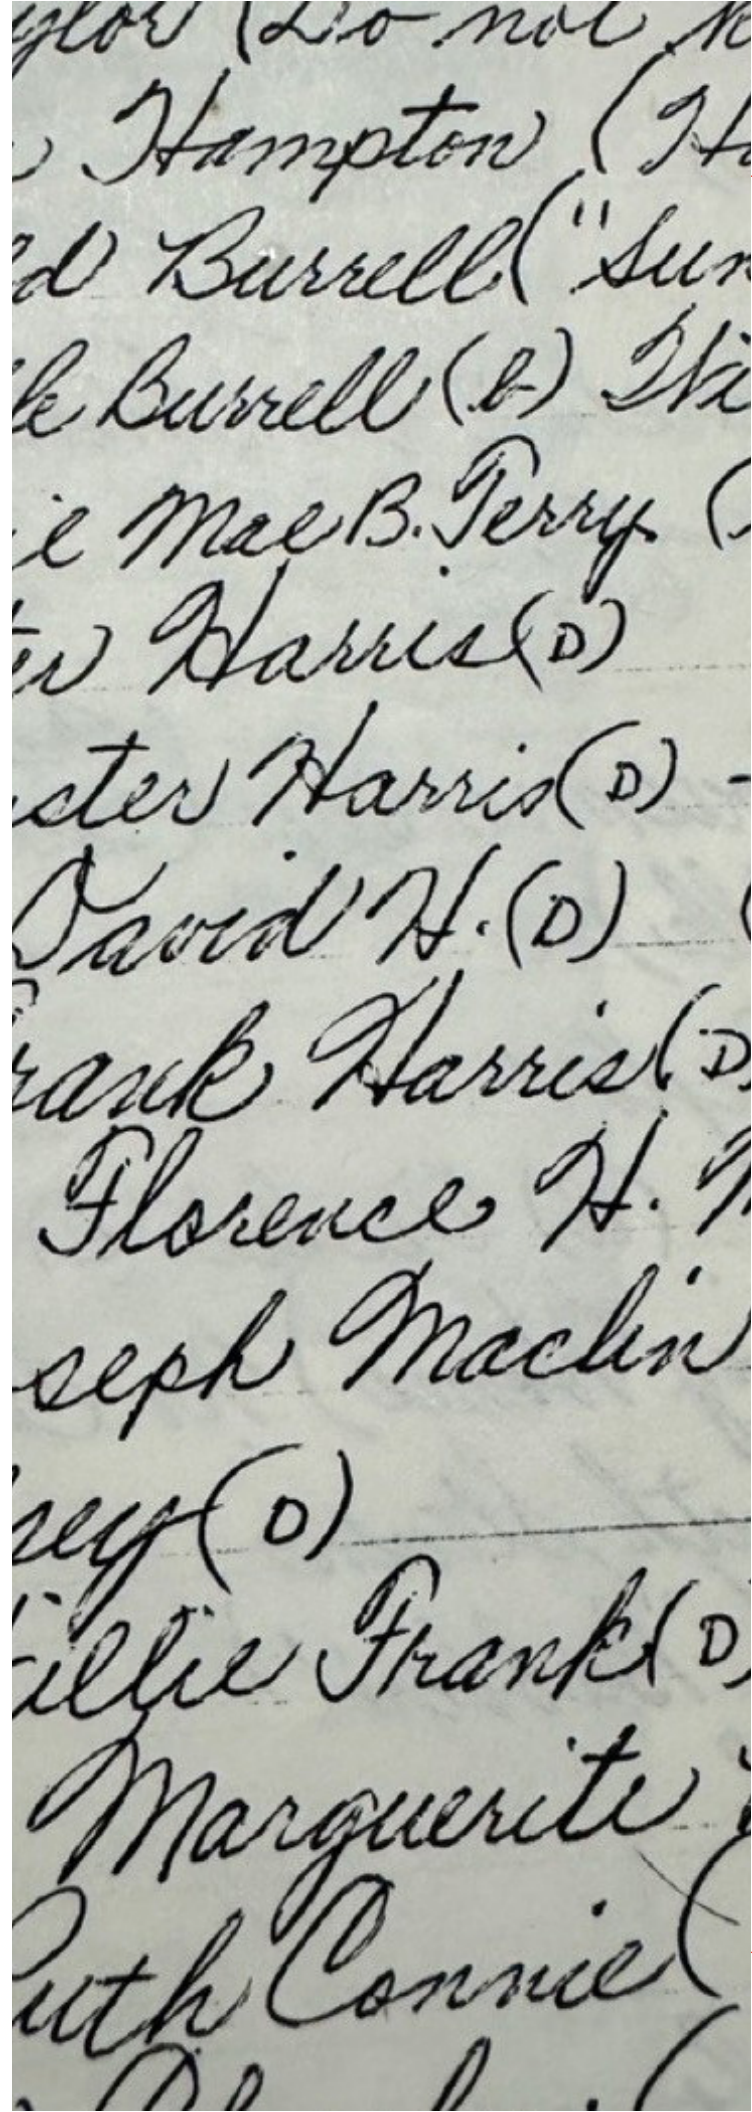 ylor (Do not
Hampton (H
d Burrell ("Sun
le Burrell (b)
ie Mae B. Perry (
ter Harris (D)
ster Harris (D) -
David H. (D) (
rank Harris (D)
Florence H. M
seph Maclin
sey (D)
illie Frank (D)
Marguerite
Ruth Connie (